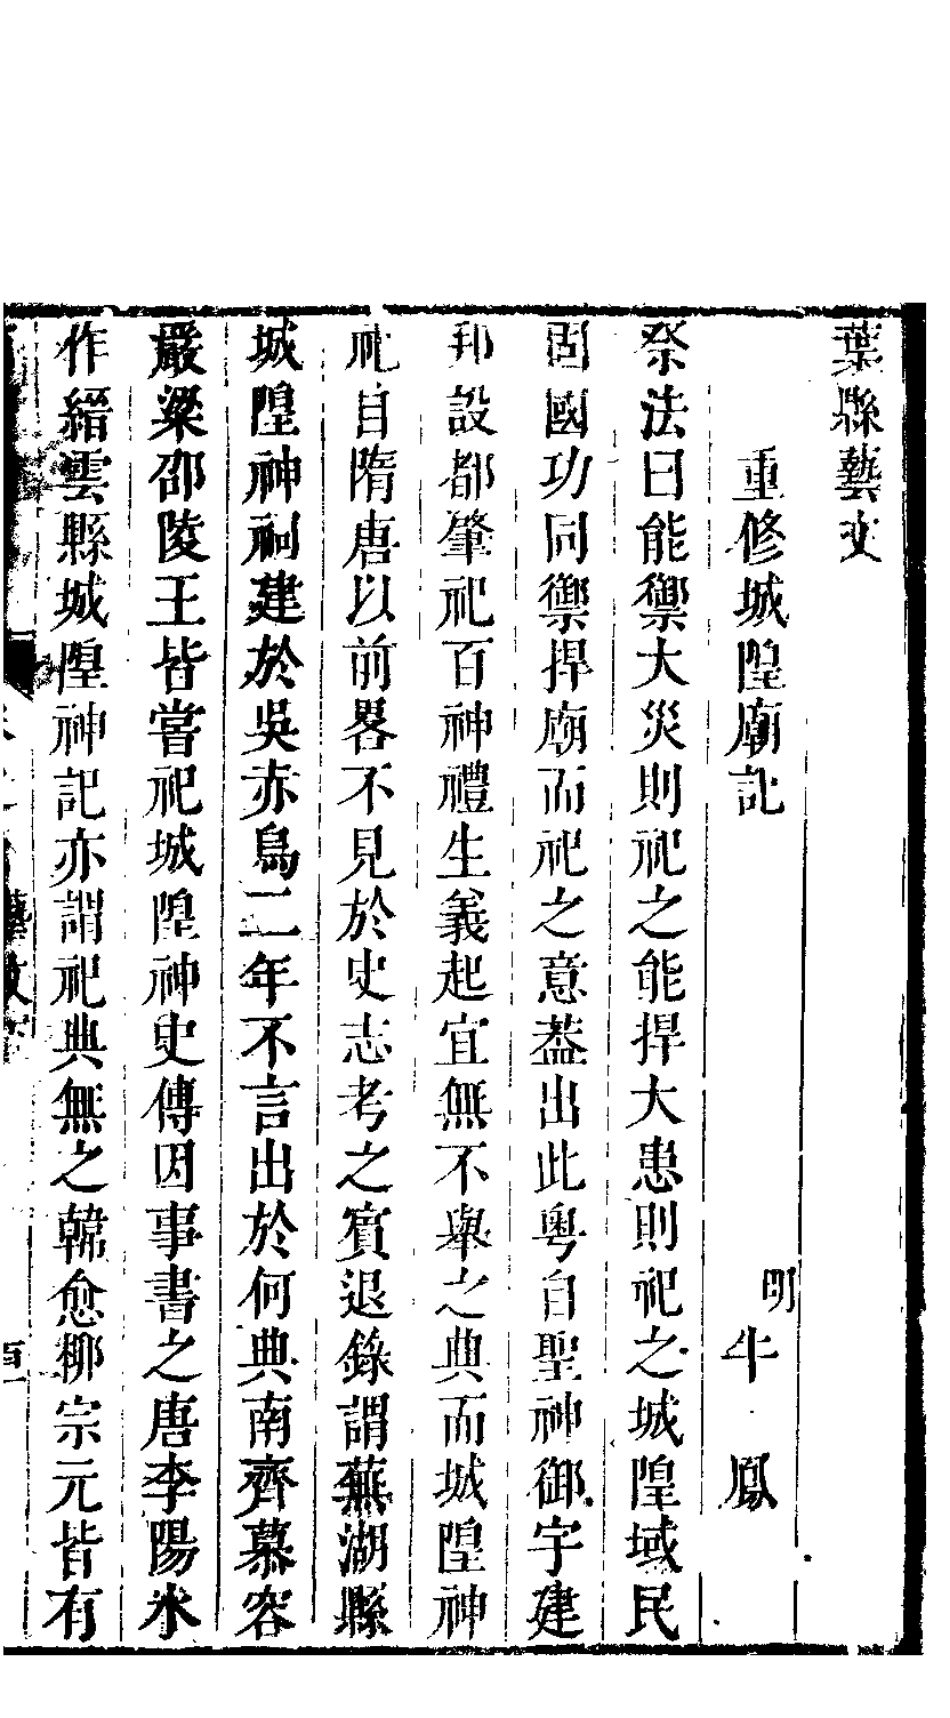 葉縣藝文
重修城隍廟記
明牛鳳
祭法曰能禦大災則祀之能捍大患則祀之城隍域民
固國功同禦捍廟而祀之意葢出此粤自聖神御宇建
邦設都肇祀百神禮生義起宜無不舉之典而城隍神
祀自隋唐以前畧不見於史志考之賓退錄謂蕪湖縣
城隍神祠建於吳赤烏二年不言出於何典南齊慕容
嚴梁邵陵王皆嘗祀城隍神史傳因事書之唐李陽氷
作縉雲縣城隍神記亦謂祀典無之韓愈柳宗元皆有